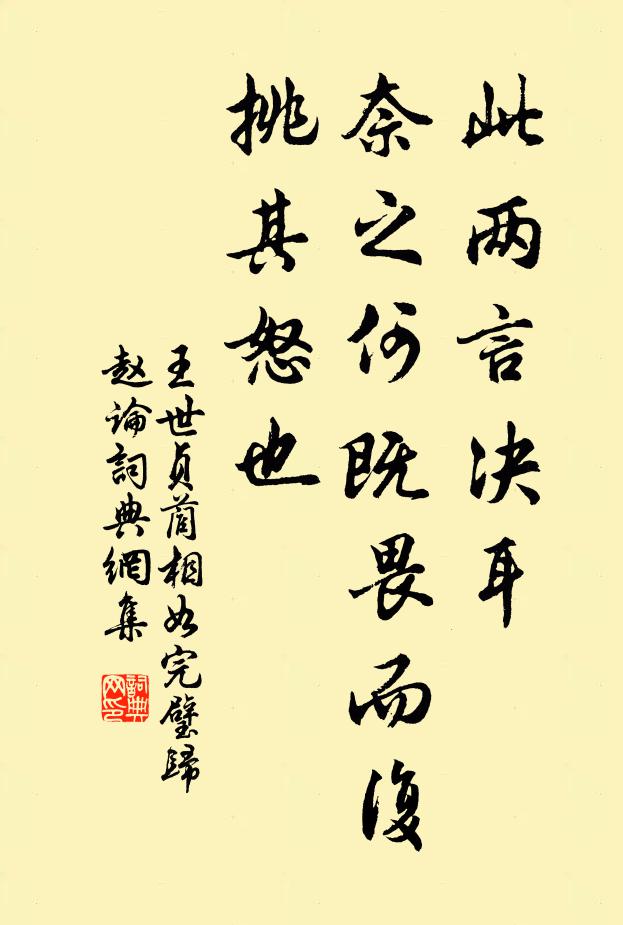 此两言决耳
奈之何既畏而復
挑其怒也
王世贞蔺相如完璧歸
赵论詞典網集
詞典
网印